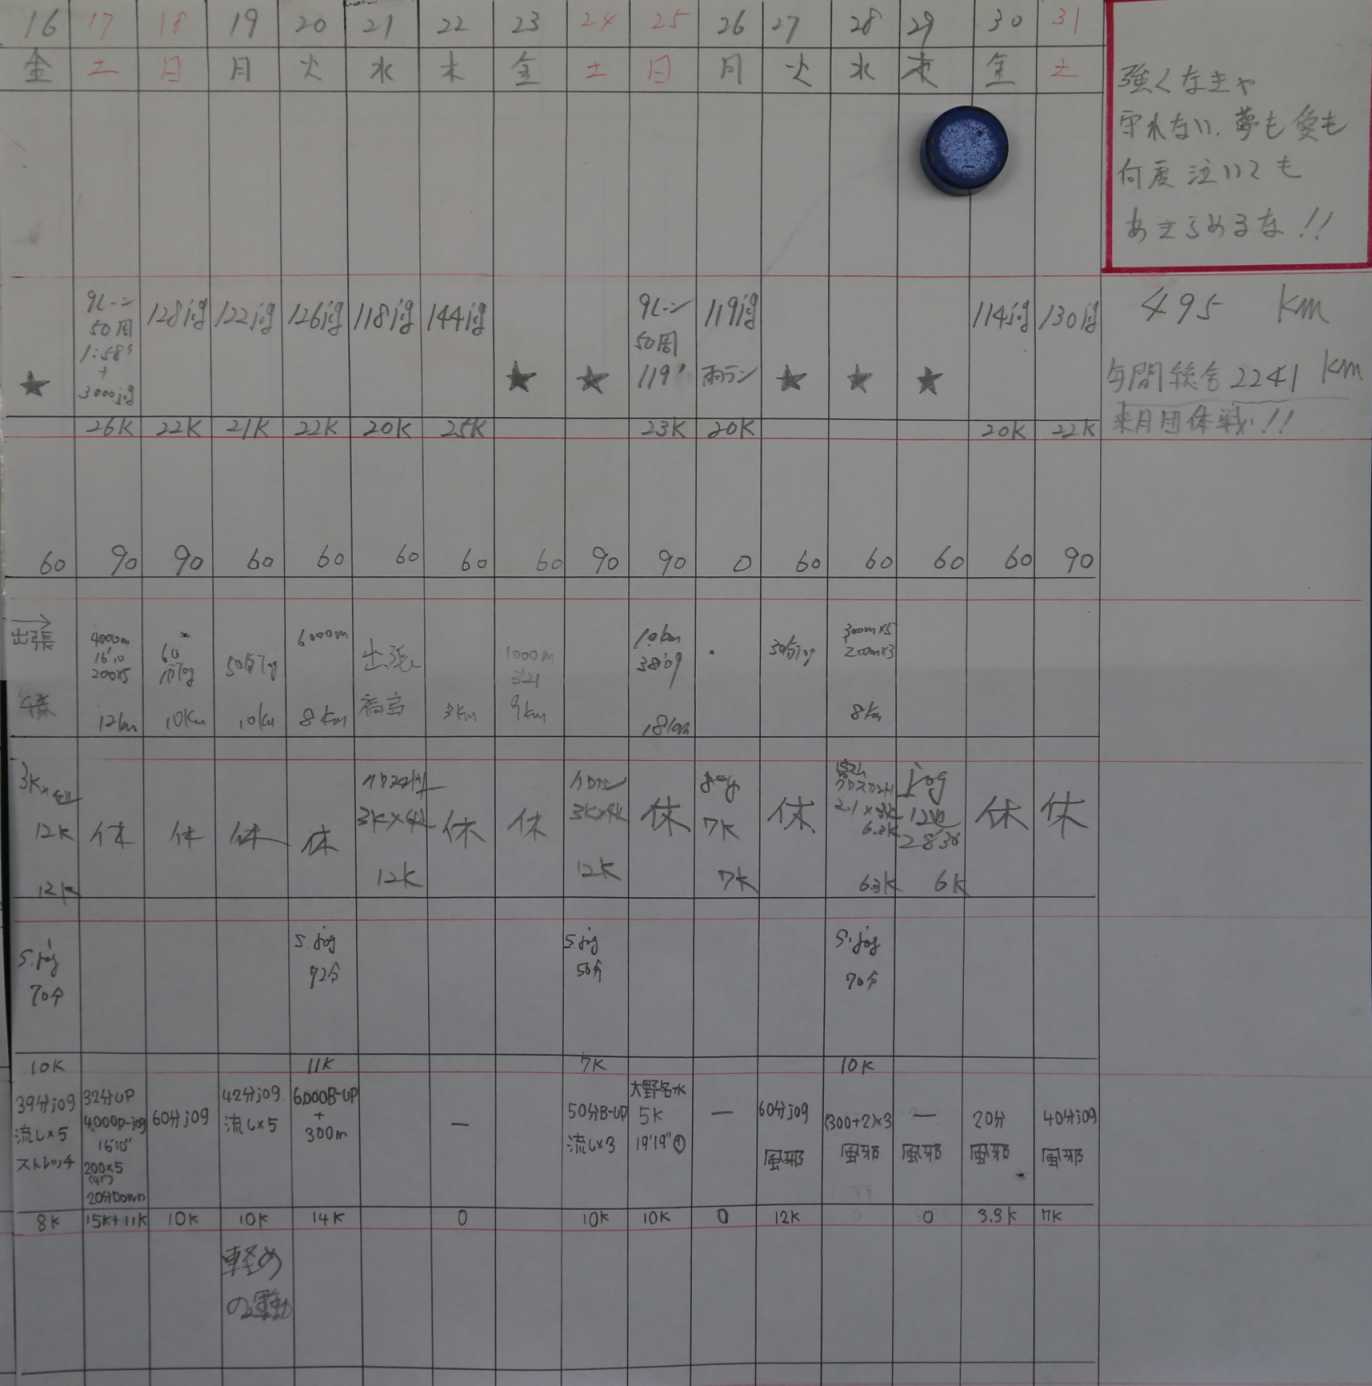 16 17 18 19 20 21 22 23 24 25 26 27 28 29 30 31
金 土 日 月 火 水 木 金 土 日 月 火 水 木 金 土
強くなきゃ
守れない、夢も愛も
何度泣いても
あきらめるな!!
9レーン
50周
1:58'
+
3000jog
128jog 122jog 126jog 118jog 144jog
9レーン
50周
119'
119jog
雨ラン
114jog 130jog
★ ★ ★ ★ ★ ★
26K 22K 21K 22K 20K 25K 23K 20K 20K 22K
495 km
年間総合 2241 km
来月団体戦!!
60 90 90 60 60 60 60 60 90 90 0 60 60 60 60 90
→
出張
4000m
16'10
200×5
12km
60
分Jog
10km
50分Jog
10km
6000m
8km
出張
3km
1000m
3'21
9km
10km
38jog
18km
30分Jog
300m×5
200m×3
8km
3K×4
12K
12K
休 休 休 休
3K×4
12K
休 休
3K×4k
12K
休
jog
7K
7K
休
2.1×3k
6.3K
6.3K
jog
6K
休 休
S.jog
70分
10K
S.jog
72分
11K
S.jog
50分
7K
S.jog
70分
10K
39分jog
流し×5
ストレッチ
8K
32分UP
4,000P-jog
16'10"
200×5
20分Down
15K+11K
60分jog
10K
42分jog
流し×5
10K
6,000B-UP
+
300m
14K
ー
0
50分B-UP
流し×3
10K
大野名水
5K
19'19"①
10K
ー
0
60分jog
風邪
12K
(300+2)×3
風邪
ー
風邪
0
20分
風邪
3.3K
40分jog
風邪
7K
軽め
の運動